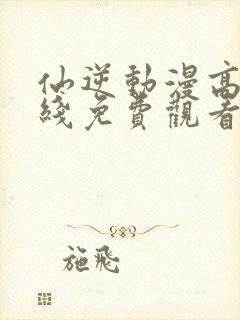 仙逆動漫高
綫免費觀看
施飛